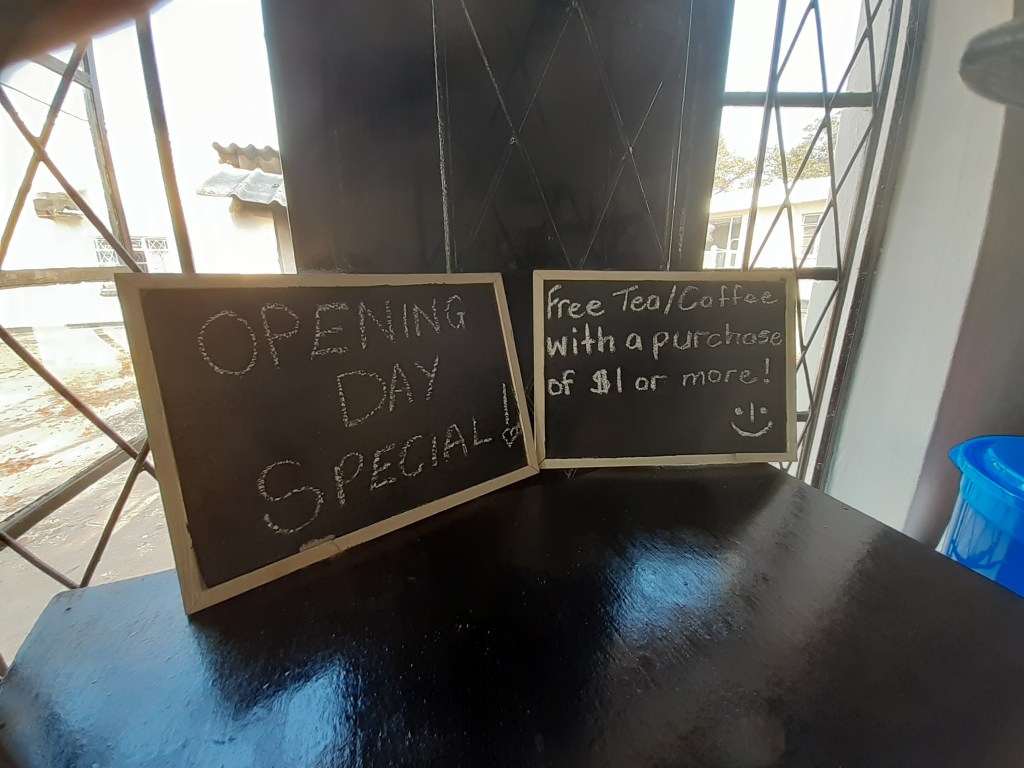 OPENING
DAY
SPECIAL!
Free Tea/Coffee
with a purchase
of $1 or more!